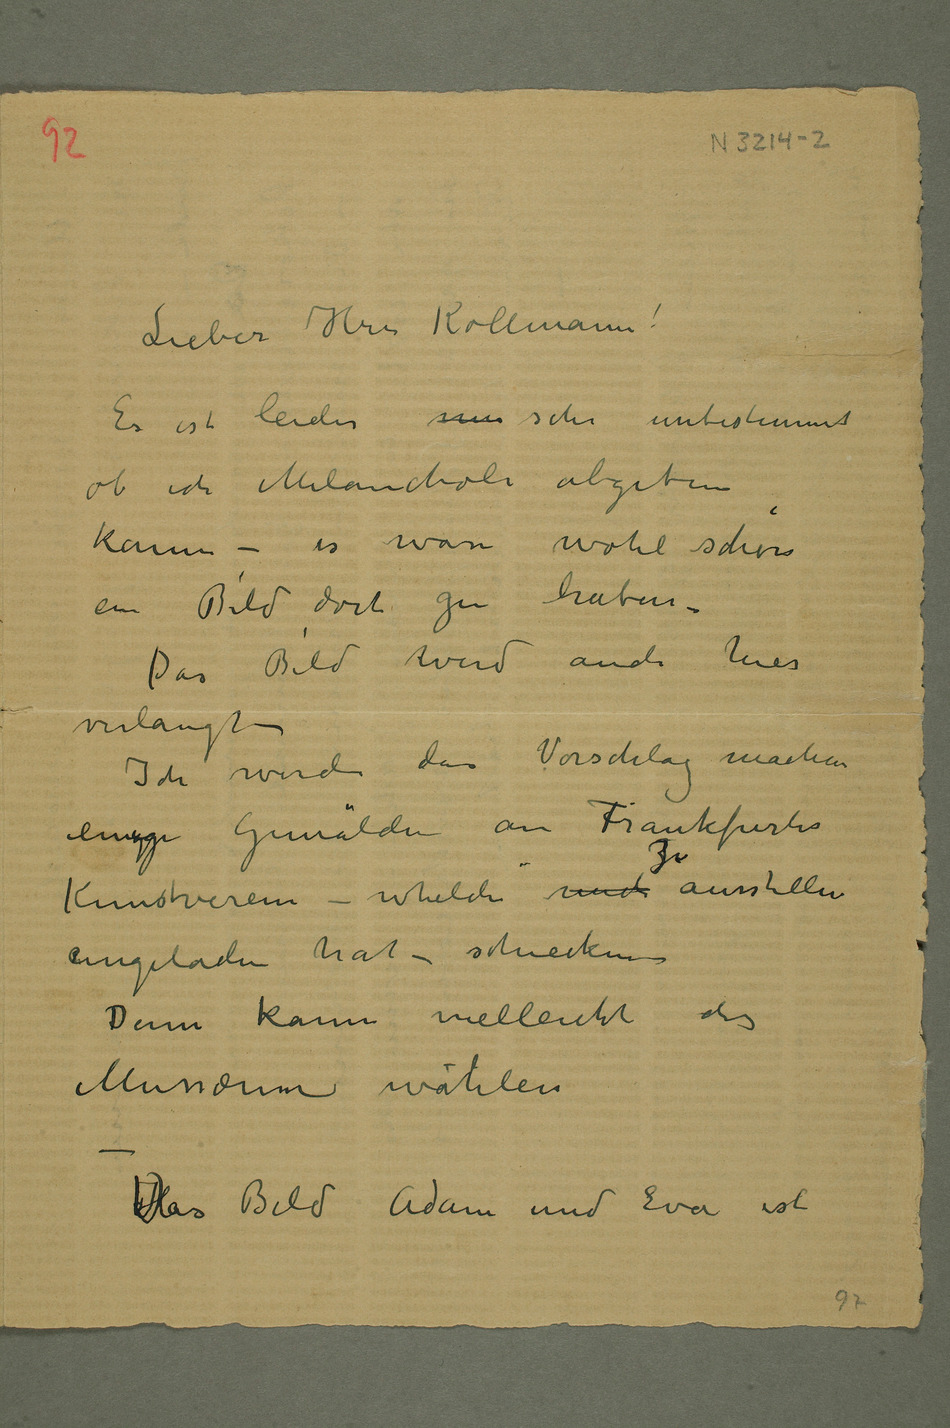 92
N 3214-2
Lieber Herr Kollmann!
Es ist leider nur sehr unbestimmt
ob ich Melancholi abgeben
kann – es war wohl schön
ein Bild dort zu haben –
Das Bild wird auch hier
verlangt –
Ich werde den Vorschlag machen
einige Gemälden an Frankfurter
Kunstverein – whelche mich zu ausstellen
eingeladen hat – schicken –
Denn kann vielleicht das
Mussæum wählen
–
Das Bild Adam und Eva ist
97